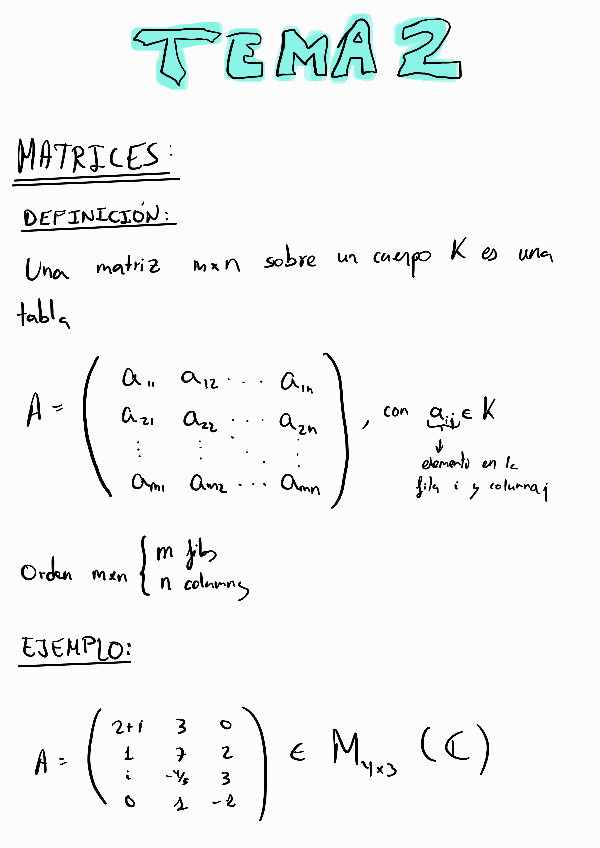 TEMA 2
MATRICES:
DEFINICIÓN:
Una matriz m×n sobre un cuerpo K es una
tabla
A = ( a₁₁ a₁₂ ... a₁ₙ
a₂₁ a₂₂ ... a₂ₙ
⋮ ⋮ ⋱ ⋮
aₘ₁ aₘ₂ ... aₘₙ ) , con aᵢⱼ ∈ K
elemento en la
fila i y columna j
Orden m×n { m filas
n columnas
EJEMPLO:
A = ( 2+i 3 0
1 7 2
i -4/5 3
0 1 -2 ) ∈ M₄ₓ₃ (ℂ)